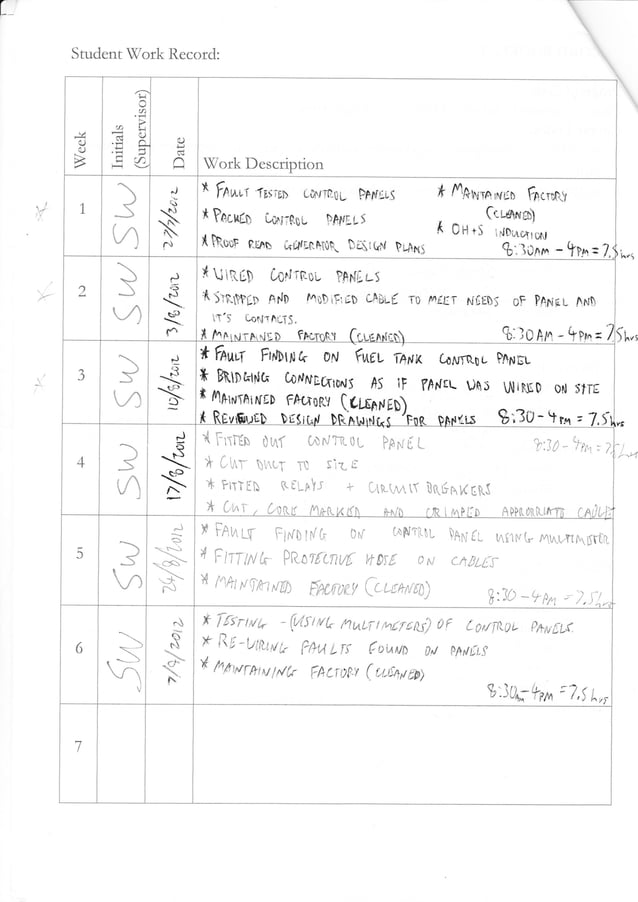 Student Work Record:
Week
Initials
(Supervisor)
Date
Work Description
1
SW
27/7/2012
* FAULT TESTED CONTROL PANELS
* PACKED CONTROL PANELS
* PROOF READ GENERATOR DESIGN PLANS
* MAINTAINED FACTORY
(CLEANED)
* OH+S INDUCTION
8:30AM - 4PM = 7.5hrs
2
SW
3/8/2012
* WIRED CONTROL PANELS
* STRIPPED AND MODIFIED CABLE TO MEET NEEDS OF PANEL AND
IT'S CONTACTS.
* MAINTAINED FACTORY (CLEANED)
8:30AM - 4PM = 7.5hrs
3
SW
10/8/2012
* FAULT FINDING ON FUEL TANK CONTROL PANEL
* BRIDGING CONNECTIONS AS IF PANEL WAS WIRED ON SITE
* MAINTAINED FACTORY (CLEANED)
* REVIEWED DESIGN DRAWINGS FOR PANELS
8:30 - 4PM = 7.5hrs
4
SW
17/8/2012
* FITTED OUT CONTROL PANEL
8:30 - 4PM = 7.5hrs
* CUT DUCT TO SIZE
* FITTED RELAYS + CIRCUIT BREAKERS
* CUT, CORE MARKED AND CRIMPED APPROPRIATE CABLE
5
SW
24/8/2012
* FAULT FINDING ON CONTROL PANEL USING MULTIMETER
* FITTING PROTECTIVE HOSE ON CABLES
* MAINTAINED FACTORY (CLEANED)
8:30 - 4PM = 7.5hrs
6
SW
7/9/2012
* TESTING - (USING MULTIMETERS) OF CONTROL PANELS.
* RE-WIRING FAULTS FOUND ON PANELS
* MAINTAINING FACTORY (CLEANED)
8:30am - 4PM = 7.5 hrs
7